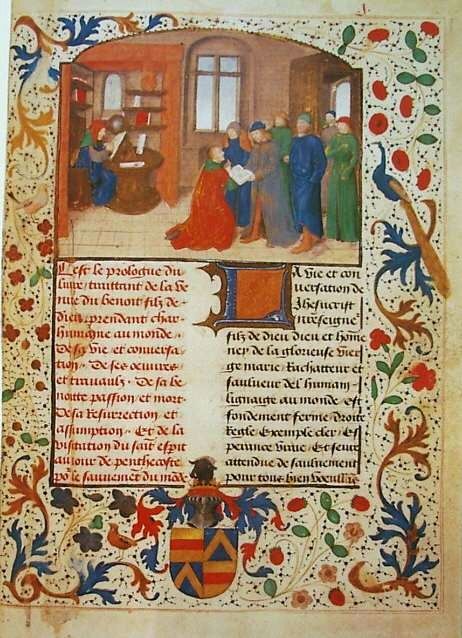 C'est le prologue du
livre traittant de la ve
nue du benoit filz de
dieu prendant char
humaine au monde
De sa vie et conversa
tion · De ses oeuvres
et travaulx · De sa be
noitte passion et mort
De sa resurrection et
assumption · Et de la
visitation du saint esprit
au jour de penthecoste
po le sauvemēt du mōde
A vie et con
versation de
Jhesucrist
filz de dieu dieu et hōme
ney de la glorieuse vier
ge marie Rachatteur et
saulveur del humain
lignaige au monde est
fondement ferme Droite
Regle Exemple cler Es
perance vraye Et seure
attendue de saulvement
pour tous bien voeullās